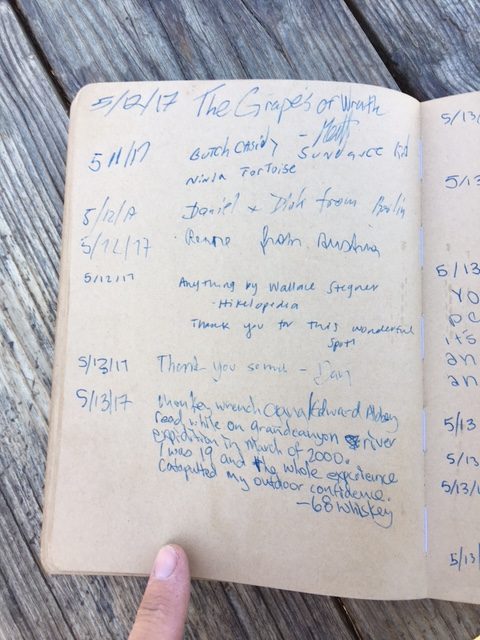 5/12/17 The Grapes of Wrath
- Matt
5/11/17 Butch Casidy Sundance Kid
Ninja Tortoise
5/12/17 Daniel + Dirk from Berlin
5/12/17 from Austria
5/12/17 Anything by Wallace Stegner
- Hikelopedia
Thank you for this wonderful
spot!
5/13/17 Thank you so much - Dan
5/13/17 Monkey wrench Gang/Edward Abbey
read while on grand canyon river
expidition in March of 2000.
I was 19 and the whole experience
catapulted my outdoor confidence.
- 68 Whiskey
5/13/
5/13
5/13
YO
pe
it's
an
an
5/13
5/13
5/13/
5/13